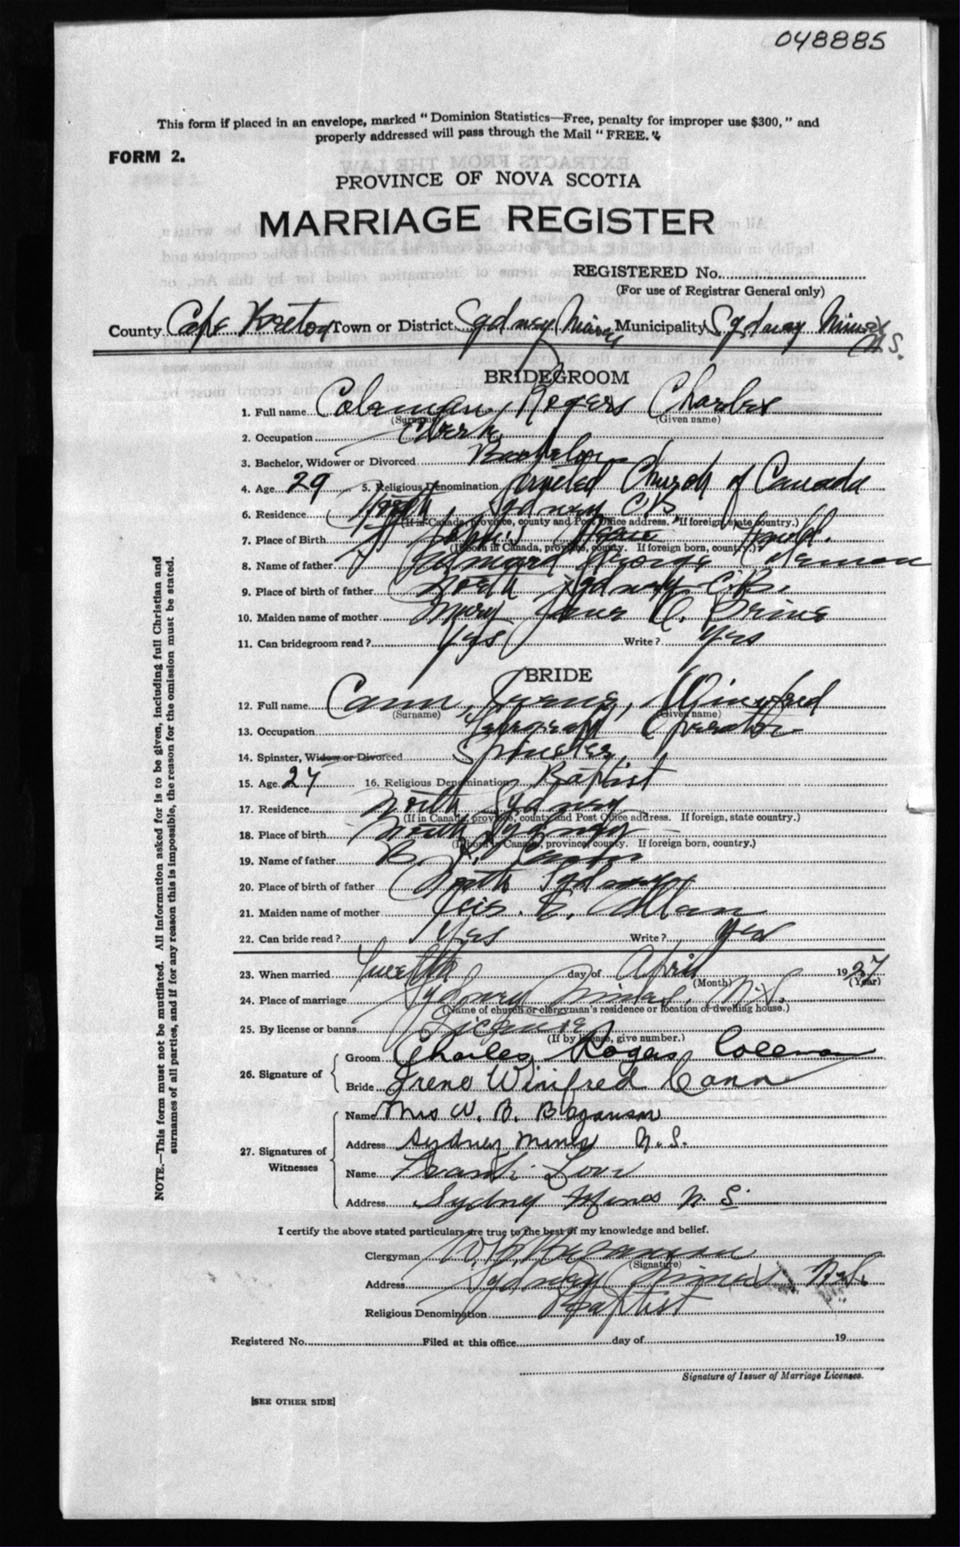 048885
This form if placed in an envelope, marked "Dominion Statistics—Free, penalty for improper use $300," and
properly addressed will pass through the Mail "FREE."
FORM 2.
PROVINCE OF NOVA SCOTIA
MARRIAGE REGISTER
REGISTERED No.
(For use of Registrar General only)
County Cape Breton Town or District Sydney Mines Municipality Sydney Mines N.S.
BRIDEGROOM
1. Full name Coleman, Rogers Charles
(Surname) (Given name)
2. Occupation Clerk
3. Bachelor, Widower or Divorced Bachelor
4. Age 29 5. Religious Denomination United Church of Canada
6. Residence North Sydney C.B.
(If in Canada, province, county and Post Office address. If foreign, state country.)
7. Place of Birth St John's Nfld.
(If born in Canada, province, county. If foreign born, country.)
8. Name of father Edward George Coleman
9. Place of birth of father North Sydney C.B.
10. Maiden name of mother Mary Jane Brine
11. Can bridegroom read? Yes Write? Yes
BRIDE
12. Full name Cann, Irene, Winifred
(Surname) (Given name)
13. Occupation Telegraph Operator
14. Spinster, Widow or Divorced Spinster
15. Age 27 16. Religious Denomination Baptist
17. Residence North Sydney
(If in Canada, province, county and Post Office address. If foreign, state country.)
18. Place of birth North Sydney
(If born in Canada, province, county. If foreign born, country.)
19. Name of father B. Cann
20. Place of birth of father North Sydney
21. Maiden name of mother E. Allan
22. Can bride read? Yes Write? Yes
23. When married Twelfth day of April 1927
(Month) (Year)
24. Place of marriage Sydney Mines, N.S.
(Name of church or clergyman's residence or location of dwelling house.)
25. By license or banns License
(If by license, give number.)
26. Signature of
Groom Charles Rogers Coleman
Bride Irene Winifred Cann
27. Signatures of Witnesses
Name Mrs W. B. Bezanson
Address Sydney Mines N.S.
Name Frank
Address Sydney Mines N.S.
I certify the above stated particulars are true to the best of my knowledge and belief.
Clergyman W. B. Bezanson
(Signature)
Address Sydney Mines N.S.
Religious Denomination Baptist
Registered No. Filed at this office day of 19
Signature of Issuer of Marriage Licenses.
[SEE OTHER SIDE]
NOTE.—This form must not be mutilated. All information asked for is to be given, including full Christian and
surnames of all parties, and if for any reason this is impossible, the reason for the omission must be stated.